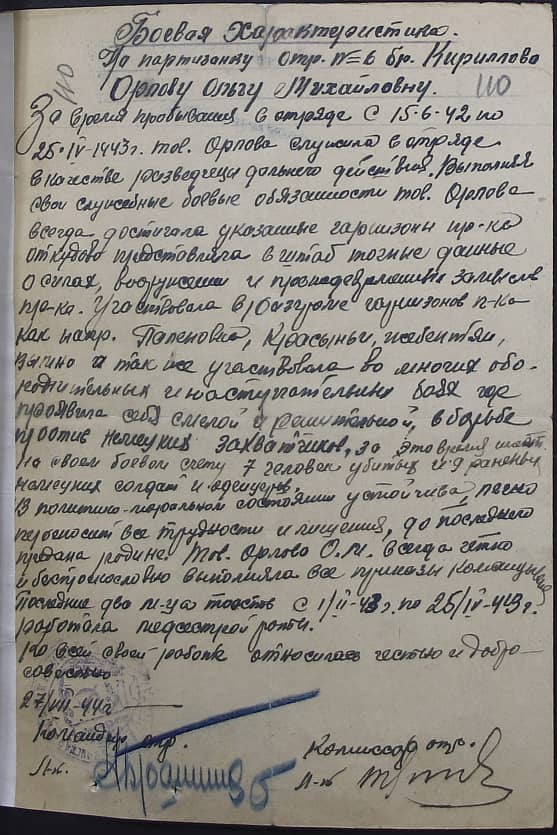 Боевая характеристика.
На партизанку отр. №6 бр. Кириллова
Орлову Ольгу Михайловну.
110
110
За время пробывания в отряде с 15-6-42 по
25-IV-1943г. тов. Орлова служила в отряде
в качестве разведчеца дальнего действия. Выполняя
свои служебные боевые обязанности тов. Орлова
всегда достигала указанные гарнизоны пр-ка
откудово представляла в штаб точные данные
о силах, вооружении и замыслов
пр-ка. Участвовала в разгроме гарнизонов п-ка
как напр.
и так же участвовала во многих обо-
ронительных и наступательных боях где
проявила себя смелой и решительной, в борьбе
против немецких захватчиков, за это время имеет
на своем боевом счету 7 человек убитых и 9 раненых
немецких солдат и офицеров.
В политико-моральном состоянии устойчива, легко
переносит все трудности и лишения, до последнего
предана родине. Тов. Орлова О.М. всегда четко
и беспрекословно выполняла все приказы командования
Последние два м-ца тоесть с 1/II-43г. по 25/IV-43г.
работала медсестрой роты.
Ко всей своей работе относилась честно и добро-
совестно
27/VII-44г
Командир отр.
Комиссар отр.
Л-т.